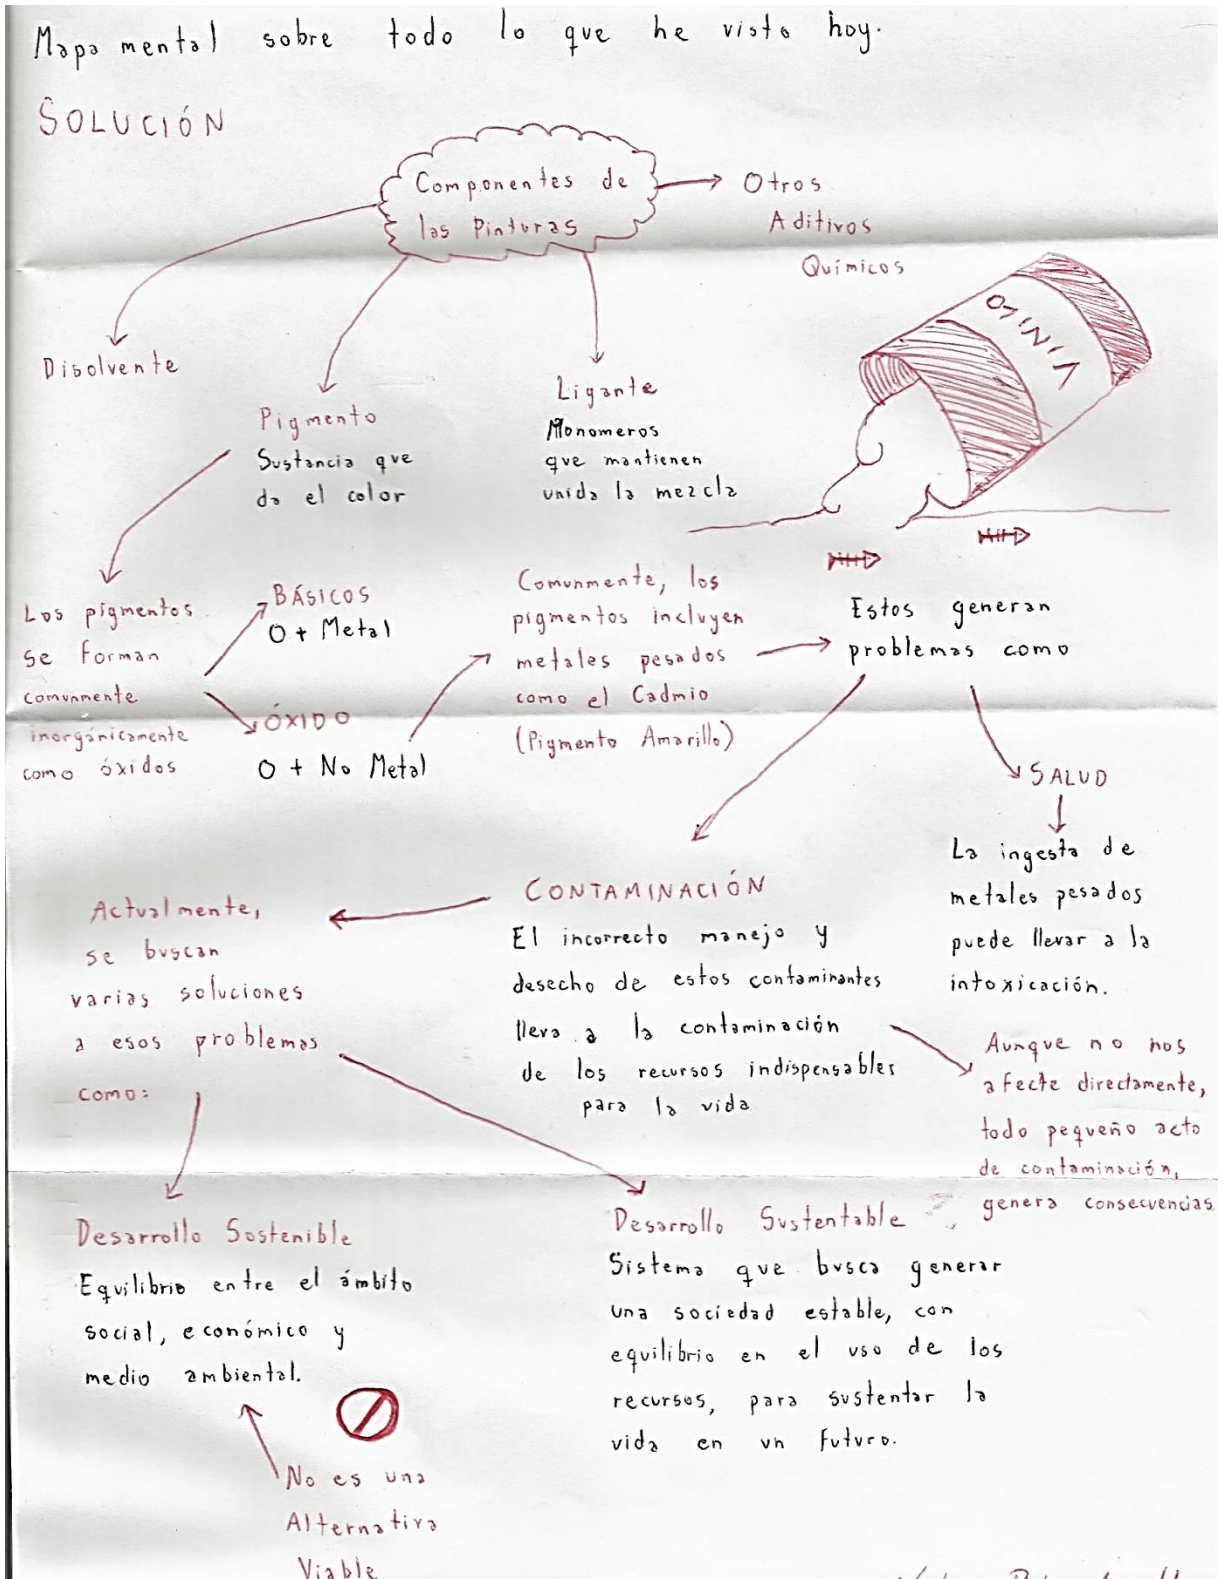 Mapa mental sobre todo lo que he visto hoy.
SOLUCIÓN
Componentes de
las Pinturas
Otros
Aditivos
Químicos
VINILO
Disolvente
Pigmento
Sustancia que
da el color
Ligante
Monomeros
que mantienen
unida la mezcla
Los pigmentos
se forman
comunmente
inorgánicamente
como óxidos
BÁSICOS
O + Metal
ÓXIDO
O + No Metal
Comunmente, los
pigmentos incluyen
metales pesados
como el Cadmio
(Pigmento Amarillo)
Estos generan
problemas como
SALUD
La ingesta de
metales pesados
puede llevar a la
intoxicación.
CONTAMINACIÓN
El incorrecto manejo y
desecho de estos contaminantes
lleva a la contaminación
de los recursos indispensables
para la vida
Aunque no nos
afecte directamente,
todo pequeño acto
de contaminación,
genera consecuencias
Actualmente,
se buscan
varias soluciones
a esos problemas
como:
Desarrollo Sostenible
Equilibrio entre el ámbito
social, económico y
medio ambiental.
No es una
Alternativa
Viable
Desarrollo Sustentable
Sistema que busca generar
una sociedad estable, con
equilibrio en el uso de los
recursos, para sustentar la
vida en un futuro.